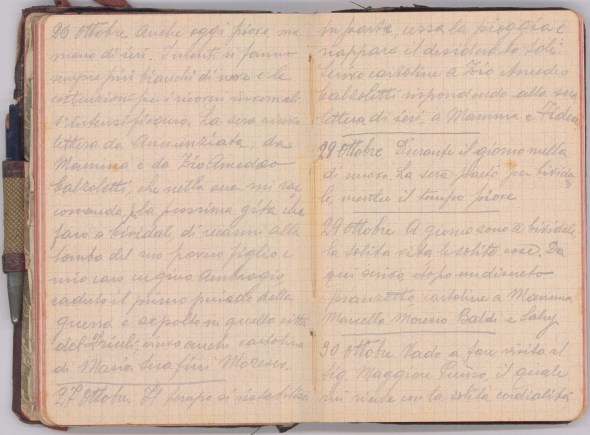 26 Ottobre Anche oggi piove, ma
meno di ieri. I monti si fanno
sempre più bianchi di neve e le
per i ricoveri invernali
s'intensificano. La sera ricevo
lettera da Annunziata, da
Mamma e da Zio Amedeo
Calzoletti, che nella sua mi rac
comanda, la prossima gita che
farò a Cividale, di recarmi alla
tomba del suo povero figlio e
mio caro cugino Ambrogio,
caduto il primo periodo della
guerra e sepolto in quella città
del Friuli. Ricevo anche cartolina
di Maria Serafini Moresco.
27 Ottobre Il tempo si ristabilisce
in parte, cessa la pioggia e
riappare il desiderato sole.
Scrivo cartoline a Zio Amedeo
Calzoletti rispondendo alla sua
lettera di ieri, a Mamma e
28 Ottobre Durante il giorno nulla
di nuovo. La sera parto per Civida
le, mentre il tempo piove
29 Ottobre A giorno sono a Cividale
la solita vita le solite cose. Da
qui scrivo dopo un discreto
pranzetto cartoline a Mamma
Marcello Moreno Baldi e
30 Ottobre Vado a fare visita al
Sig. Maggiore il quale
mi riceve con la solita cordialità